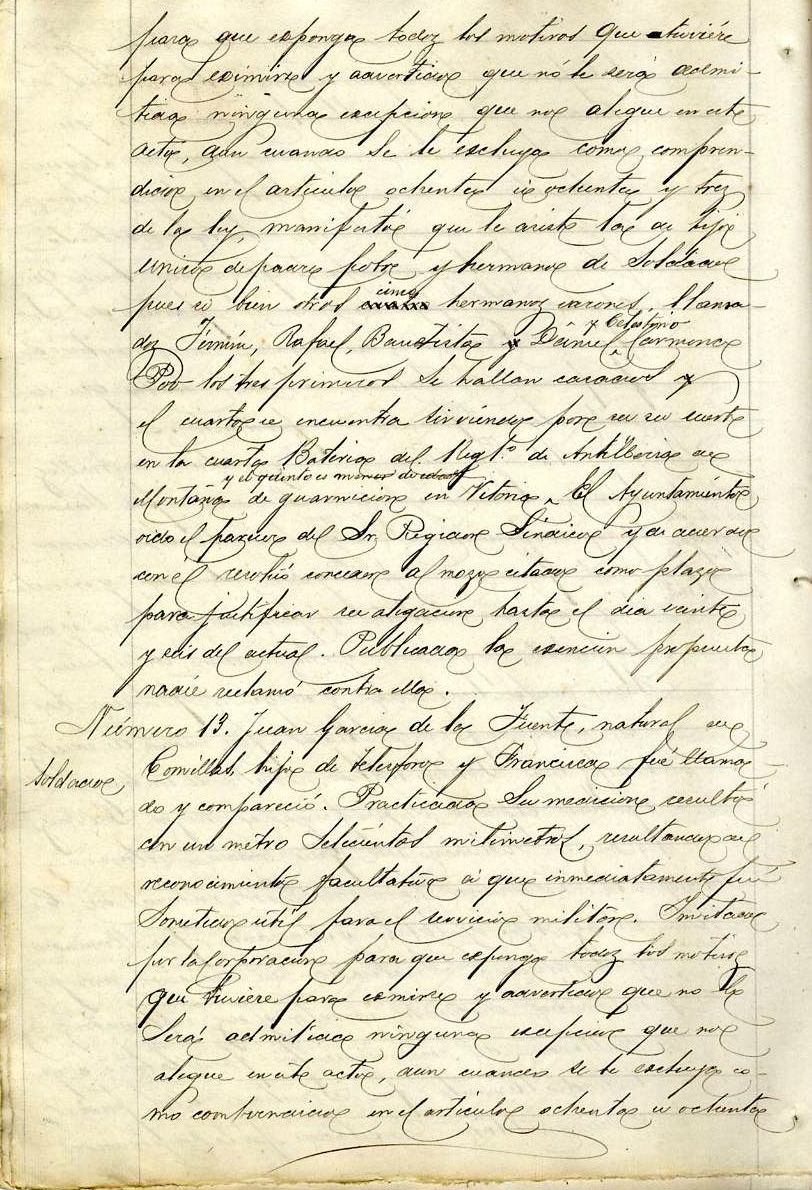 para que esponga todoz los motivos que tuviére
para eximirse y advertido que nó le será admi-
tida ninguna escepcion que no alegue en este
acto, aun cuando se le escluya como compren-
dido en el articulo ochenta ú ochenta y trez
de la ley, manifestó que le asiste la de hijo
unico de padre pobre y hermano de Soldado
pues si bien otros cinco hermanoz varones, llama-
doz Fermin, Rafael, Bautista y Daniel y Celestino Carmona
Pov los tres primeros se hallan casados y
el cuarto se encuentra sirviendo por su suerte
en la cuarta Bateria del Regto. de Artilleria de
y el quinto es menor de edad
Montaña de guarnicion en Vitoria. El Ayuntamiento
oido el parecer del Sr. Regidor Síndico y de acuerdo
con él resolvió conceder al mozo citado como plazo
para justificar su alegacion hasta el dia veinte
y seis del actual. Publicada la esencion propuesta
nadie reclamó contra ella.
Número 13. Juan Garcia de la Fuente, natural de
soldado
Comillas, hijo de Telesforo y Francisca fué llama-
do y compareció. Practicada su medicion resultó
con un métro seiscientos milimetros, resultando del
reconocimiento facultativo á que inmediatamente fué
sometido útil para el servicio militar. Invitado
por la Corporacion para que esponga todoz los motivoz
que tuviere para eximirse y advertido que no le
será admitida ninguna escepcion que no
alegue en este acto, aun cuando se le escluya co-
mo comprendido en el articulo ochenta ú ochenta